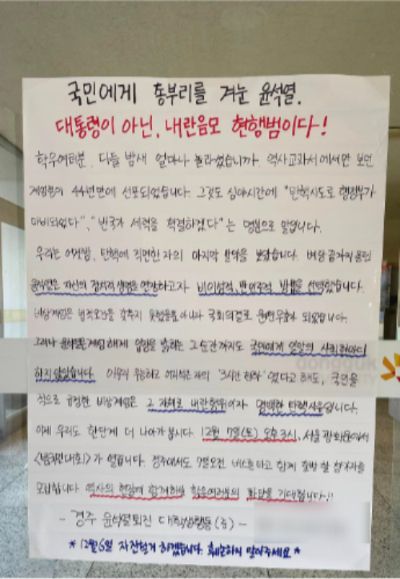 국민에게 총부리를 겨눈 윤석열.
대통령이 아닌, 내란음모 현행범이다!
학우여러분, 다들 밤새 얼마나 놀라셨습니까. 역사교과서에서만 보던
계엄령이 44년만에 선포되었습니다. 그것도 심야시간에 "탄핵시도로 행정부가
마비되었다", "반국가 세력을 척결하겠다"는 명목으로 말입니다.
우리는 어젯밤, 탄핵에 직면한 자의 마지막 발악을 보았습니다. 벼랑 끝까지 몰린
윤석열은 자신의 정치적 생명을 연장하고자 비이성적, 반민주적 방법을 선택했습니다.
비상계엄은 법적요건을 갖추지 못했을뿐 아니라 국회의결로 원천무효가 되었습니다.
그러나 윤석열은 계엄해제 입장을 밝히는 그 순간까지도 국민에게 일말의 사죄하나
하지 않았습니다. 이 무능하고 어리석은 자의 '3시간 천하'였다고 해도, 국민을
적으로 규정한 비상계엄은 그 자체로 내란행위이자 명백한 탄핵사유입니다.
이제 우리도 한단계 더 나아가 봅시다. 12월 7일(토) 오후 3시, 서울 광화문에서
<시국대회>가 열립니다. 경주에서도 7일오전 버스를 타고 함께 출발할 참가자를
모집합니다. 역사의 현장에 함께하실 학우여러분의 화답을 기대합니다!!
- 경주 윤석열퇴진 대학생행동(준) -
* 12월 6일 자진철거 하겠습니다. 훼손하지 말아주세요 *
dongguk